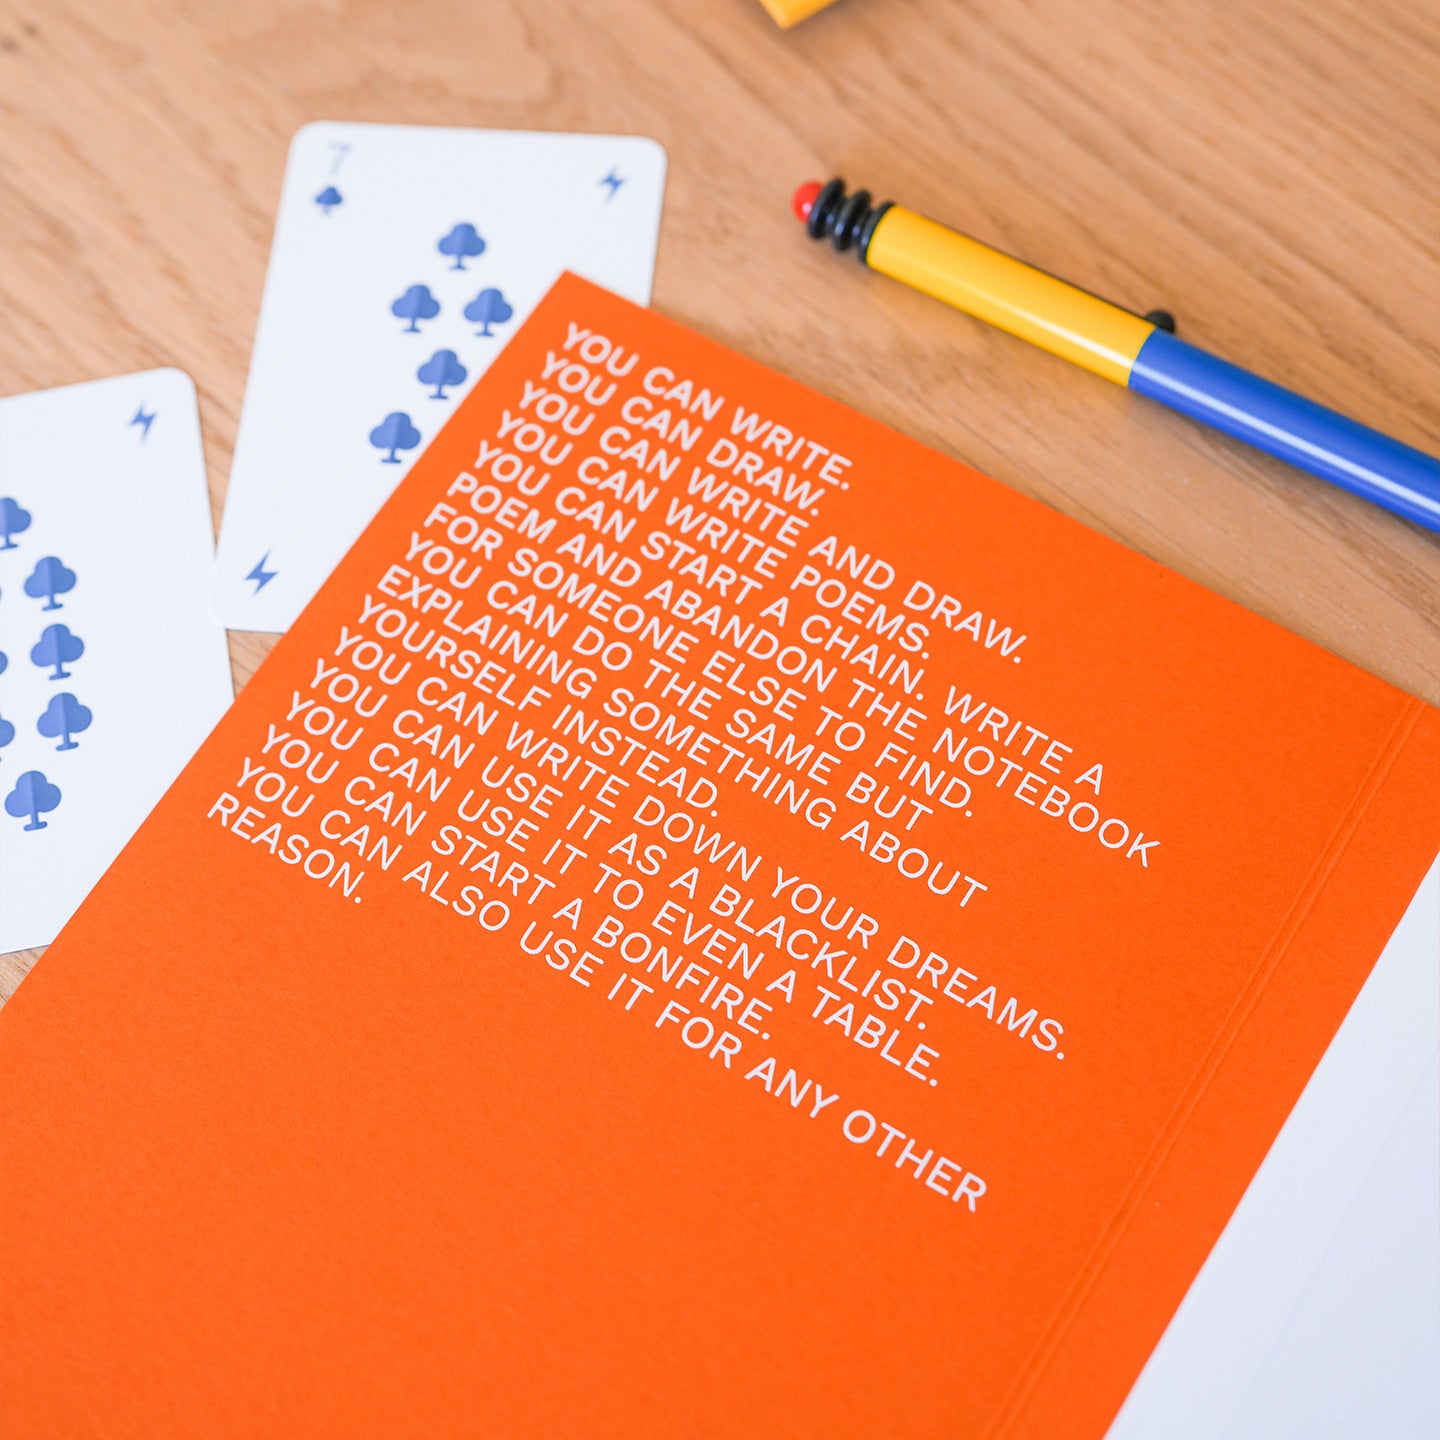 7
YOU CAN WRITE.
YOU CAN DRAW.
YOU CAN WRITE AND DRAW.
YOU CAN WRITE POEMS.
YOU CAN START A CHAIN. WRITE A
POEM AND ABANDON THE NOTEBOOK
FOR SOMEONE ELSE TO FIND.
YOU CAN DO THE SAME BUT
EXPLAINING SOMETHING ABOUT
YOURSELF INSTEAD.
YOU CAN WRITE DOWN YOUR DREAMS.
YOU CAN USE IT AS A BLACKLIST.
YOU CAN USE IT TO EVEN A TABLE.
YOU CAN START A BONFIRE.
YOU CAN ALSO USE IT FOR ANY OTHER
REASON.